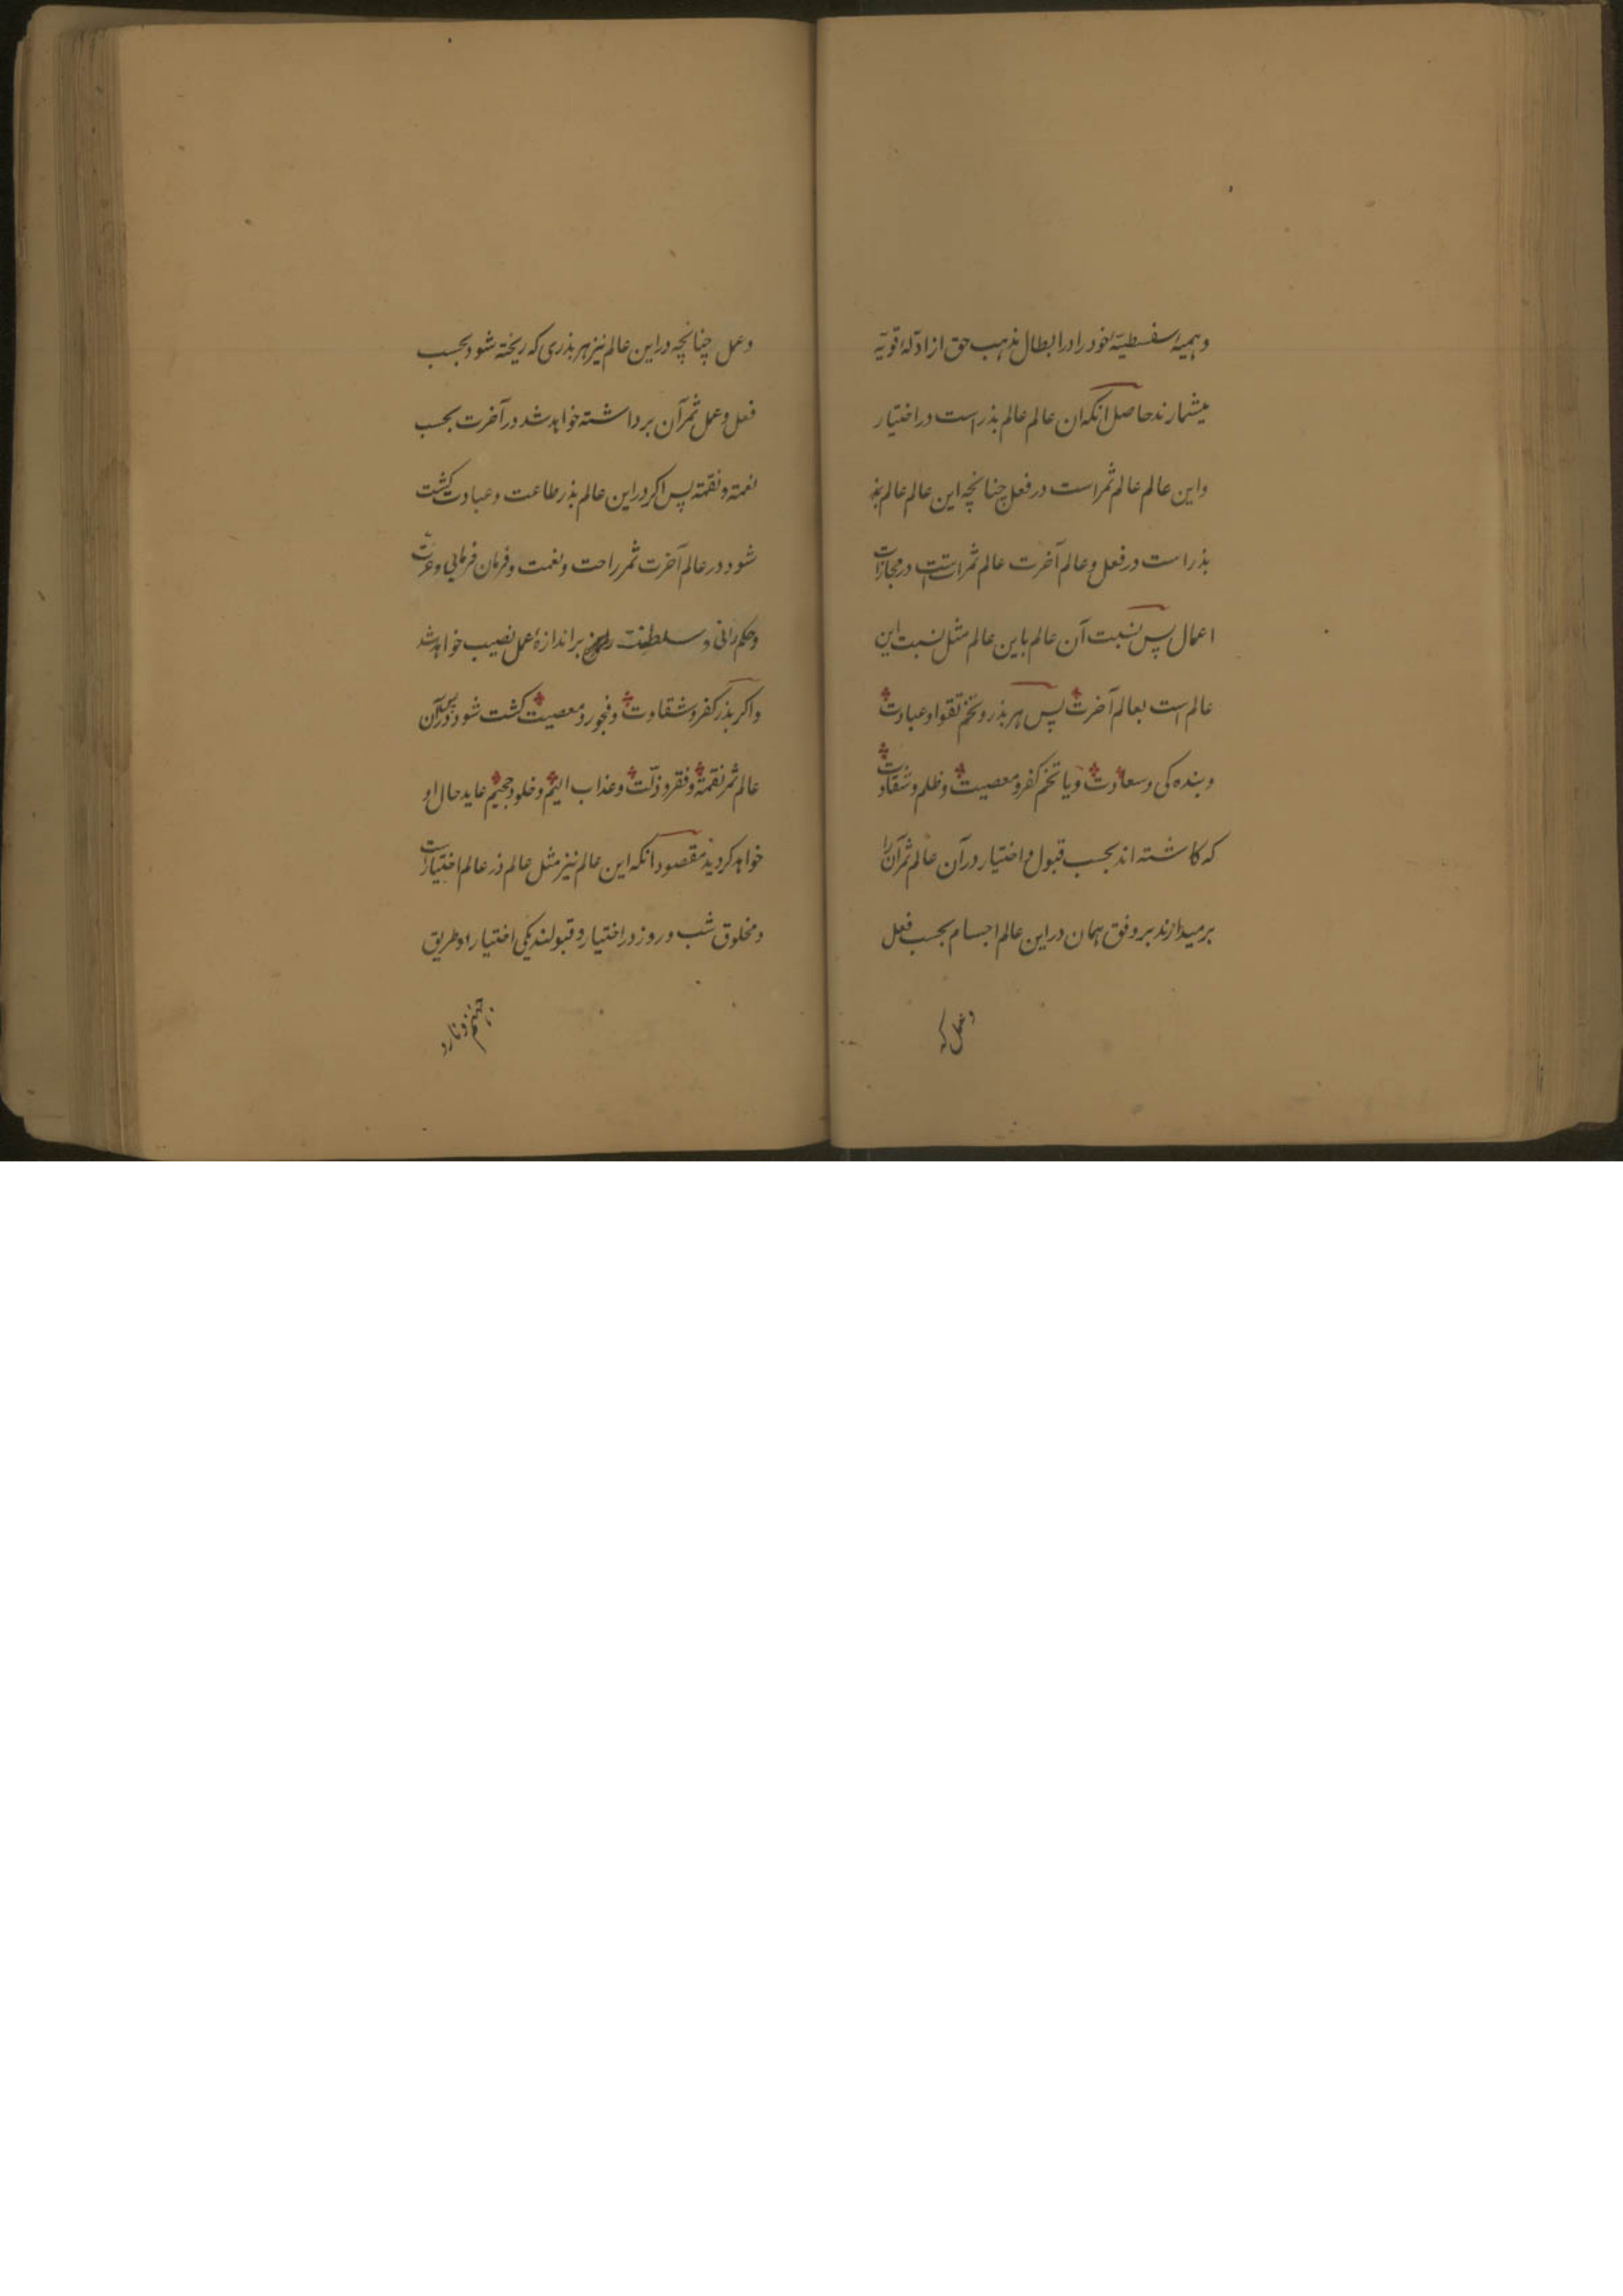 وهمیهٔ سفسطیّهٔ خود را در ابطال مذهب حق از ادلّهٔ قویّه
میشمارند حاصل انکه ان عالم عالم بذر است در اختیار
واین عالم عالم ثمر است در فعل چنانچه این عالم عالم بذ
بذر است در فعل وعالم آخرت عالم ثمر است در مجازات
اعمال پس نسبت آن عالم باین عالم مثل نسبت این
عالم است بعالم آخرت پس هر بذر وتخم تقوا وعبادت
وبنده کی وسعادت ویا تخم کفر ومعصیت وظلم وشقاوت
که کاشته اند بحسب قبول واختیار در آن عالم ثمر آن را
برمیدارند بر وفق همان در این عالم اجسام بحسب فعل
وعمل که
وعمل چنانچه در این عالم نیز هر بذری که ریخته شود بحسب
فعل وعمل ثمر آن برداشته خواهد شد در آخرت بحسب
نعمته ونقمته پس اکر در این عالم بذر طاعت وعبادت کشت
شود در عالم آخرت ثمر راحت ونعمت وفرمان فرمایی وعزّت
وحکم رانی وسلطنت بر اندازهٔ عمل نصیب خواهد شد
واکر بذر کفر وشقاوت وفجور ومعصیت کشت شود در آن
عالم ثمر نقمة وفقر وذلّت وعذاب الیم وخلود جحیم عاید حال او
خواهد کردید مقصود انکه این عالم نیز مثل عالم ذر عالم اختیار است
ومخلوق شب وروز در اختیار وقبولند یکی اختیار او طریق